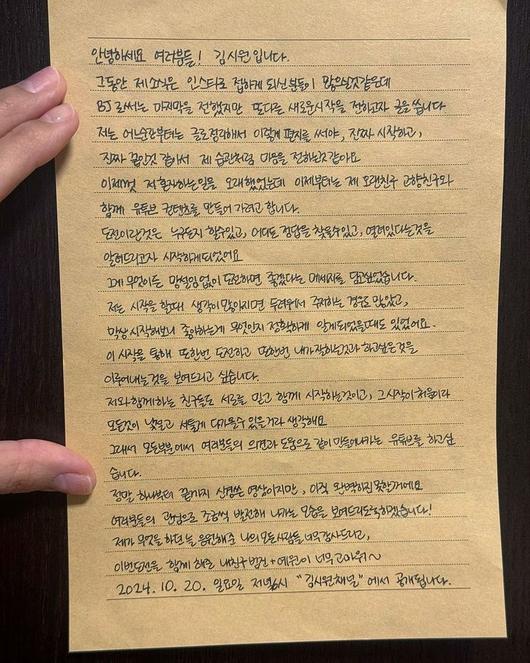 안녕하세요 여러분들! 김시원입니다.
그동안 제 소식은 인스타로 접하게 되신분들이 많으실것같은데
BJ로써는 마지막을 전했지만 또다른 새로운시작을 전하고자 글을 씁니다
저는 어느순간부터는 글로 정리해서 이렇게 편지를 써야, 진짜 시작하고,
진짜 끝인것 같아서 제 습관처럼 마음을 전하는것같아요
이제껏 저 혼자하는일을 오래했었는데 이제부터는 제 오랜친구 고향친구와
함께 유튜브 컨텐츠를 만들어 가려고 합니다.
도전이란것은 누구든지 할수있고, 어디든 정답을 찾을수있고, 열려있다는것을
알려드리고자 시작하게되었어요
그게 무엇이든 망설임없이 도전하면 좋겠다는 메세지를 담고싶었습니다.
저는 시작을 할때 생각이 많아지면 두려워서 주저하는 경우도 많았고,
막상 시작해보니 좋아하는게 무엇인지 정확하게 알게되었을때도 있었어요.
이 시작을 통해 또한번 도전하고 또한번 내가 잘하는것과 하고싶은것을
이루어내는것을 보여드리고 싶습니다.
저와 함께하는 친구들도 서로를 믿고 함께 시작하는것이고, 그 시작이 처음이라
모든것이 낯설고 서툴게 다가올수 있을거라 생각해요
그래서 모든부분에서 여러분들의 의견과 도움으로 같이 만들어나가는 유튜브를 하고싶
습니다.
정말 하나부터 끝까지 신경쓴 영상이지만, 아직 완벽하진 못할꺼에요
여러분들의 관심으로 조금씩 발전해 나가는 모습을 보여드리도록하겠습니다!
제가 무엇을 하던 늘 응원해준 나의 모든사람들 너무 감사드리고,
이번도전을 함께 해준 내친구 범건+예원이 너무 고마워~
2024. 10. 20. 일요일 저녁6시 "김시원채널" 에서 공개됩니다.